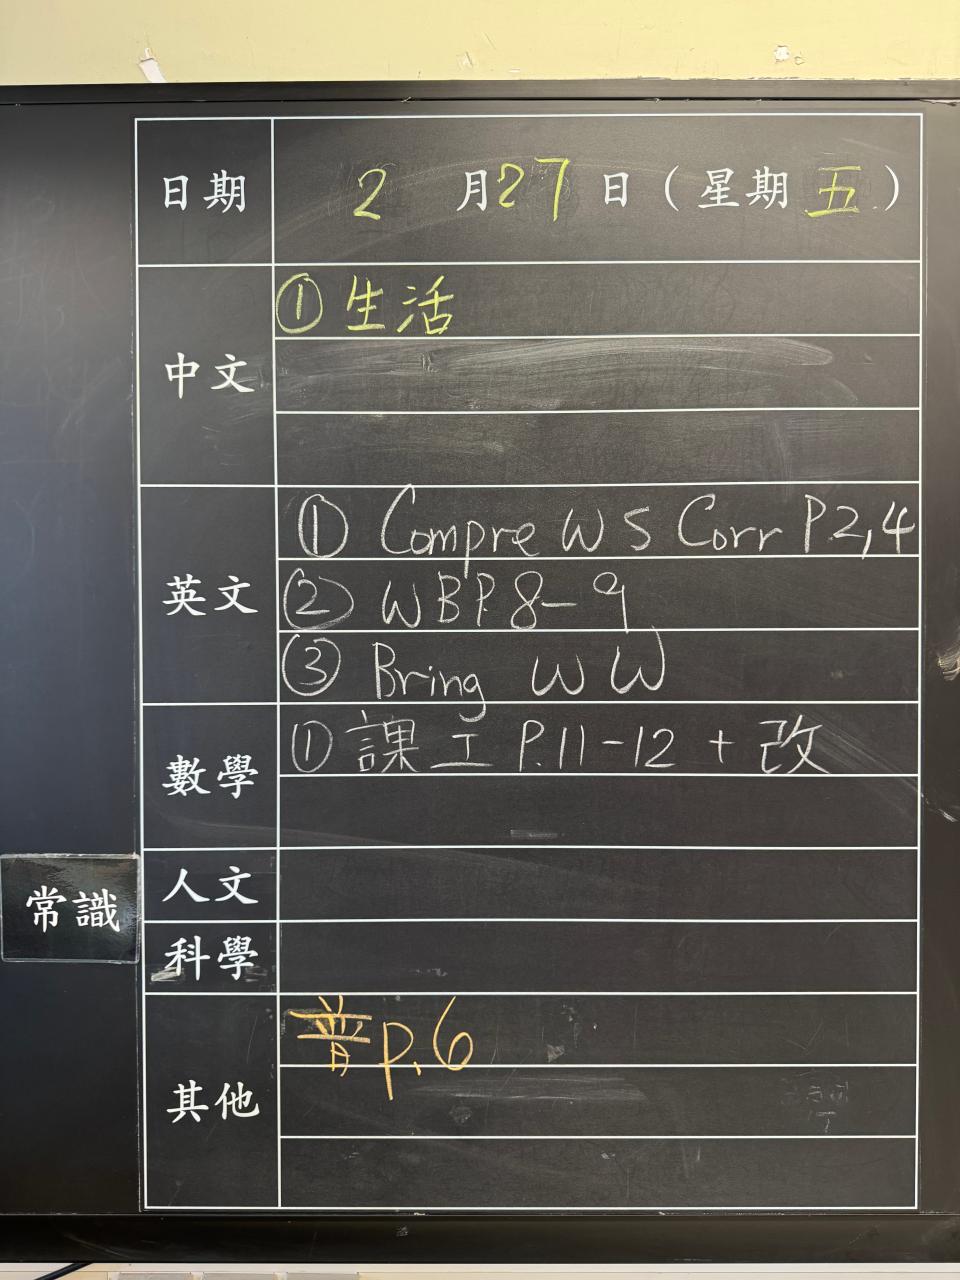 日期 2 月 27 日 (星期 五)
中文 ① 生活
英文 ① Compre WS Corr P.2,4
② WB P.8-9
③ Bring WW
數學 ① 課工 P.11-12 + 改
人文
常識
科學
其他 普 p.6